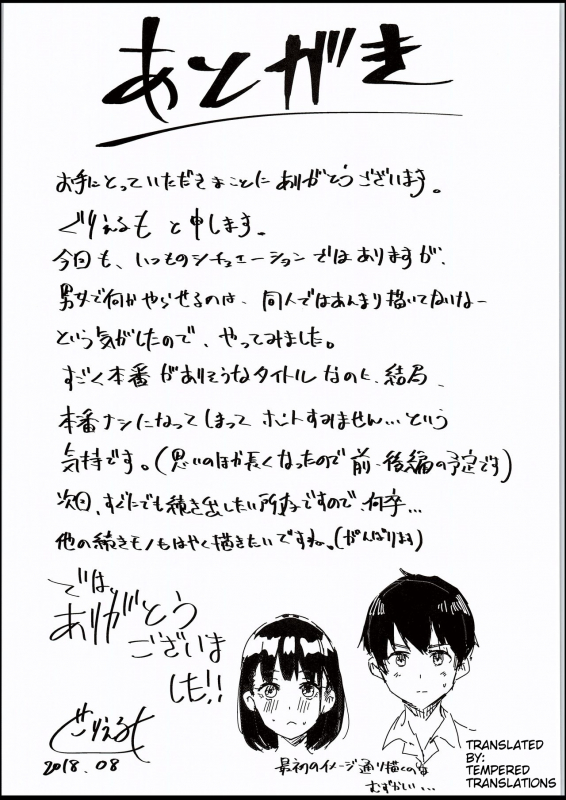 あとがき
お手にとっていただきまことにありがとうございます。
ぐりえるもと申します。
今回も、いつものシチュエーションではありますが、
男女で何かやらせるのは、同人ではあんまり描いてないなー
という気がしたので、やってみました。
すごく本番がありそうなタイトルなのに、結局、
本番ナシになってしまってホントすみません…という
気持です。(思いのほか長くなったので前・後編の予定です)
次回、すぐにでも続き出したい所存ですので、何卒…
他の続きモノもはやく描きたいですね。(がんばります)
では、
ありがとう
ございま
した!!
ぐりえるも
2018.08
最初のイメージ通り描くのは
むずかしい…
TRANSLATED
BY:
TEMPERED
TRANSLATIONS